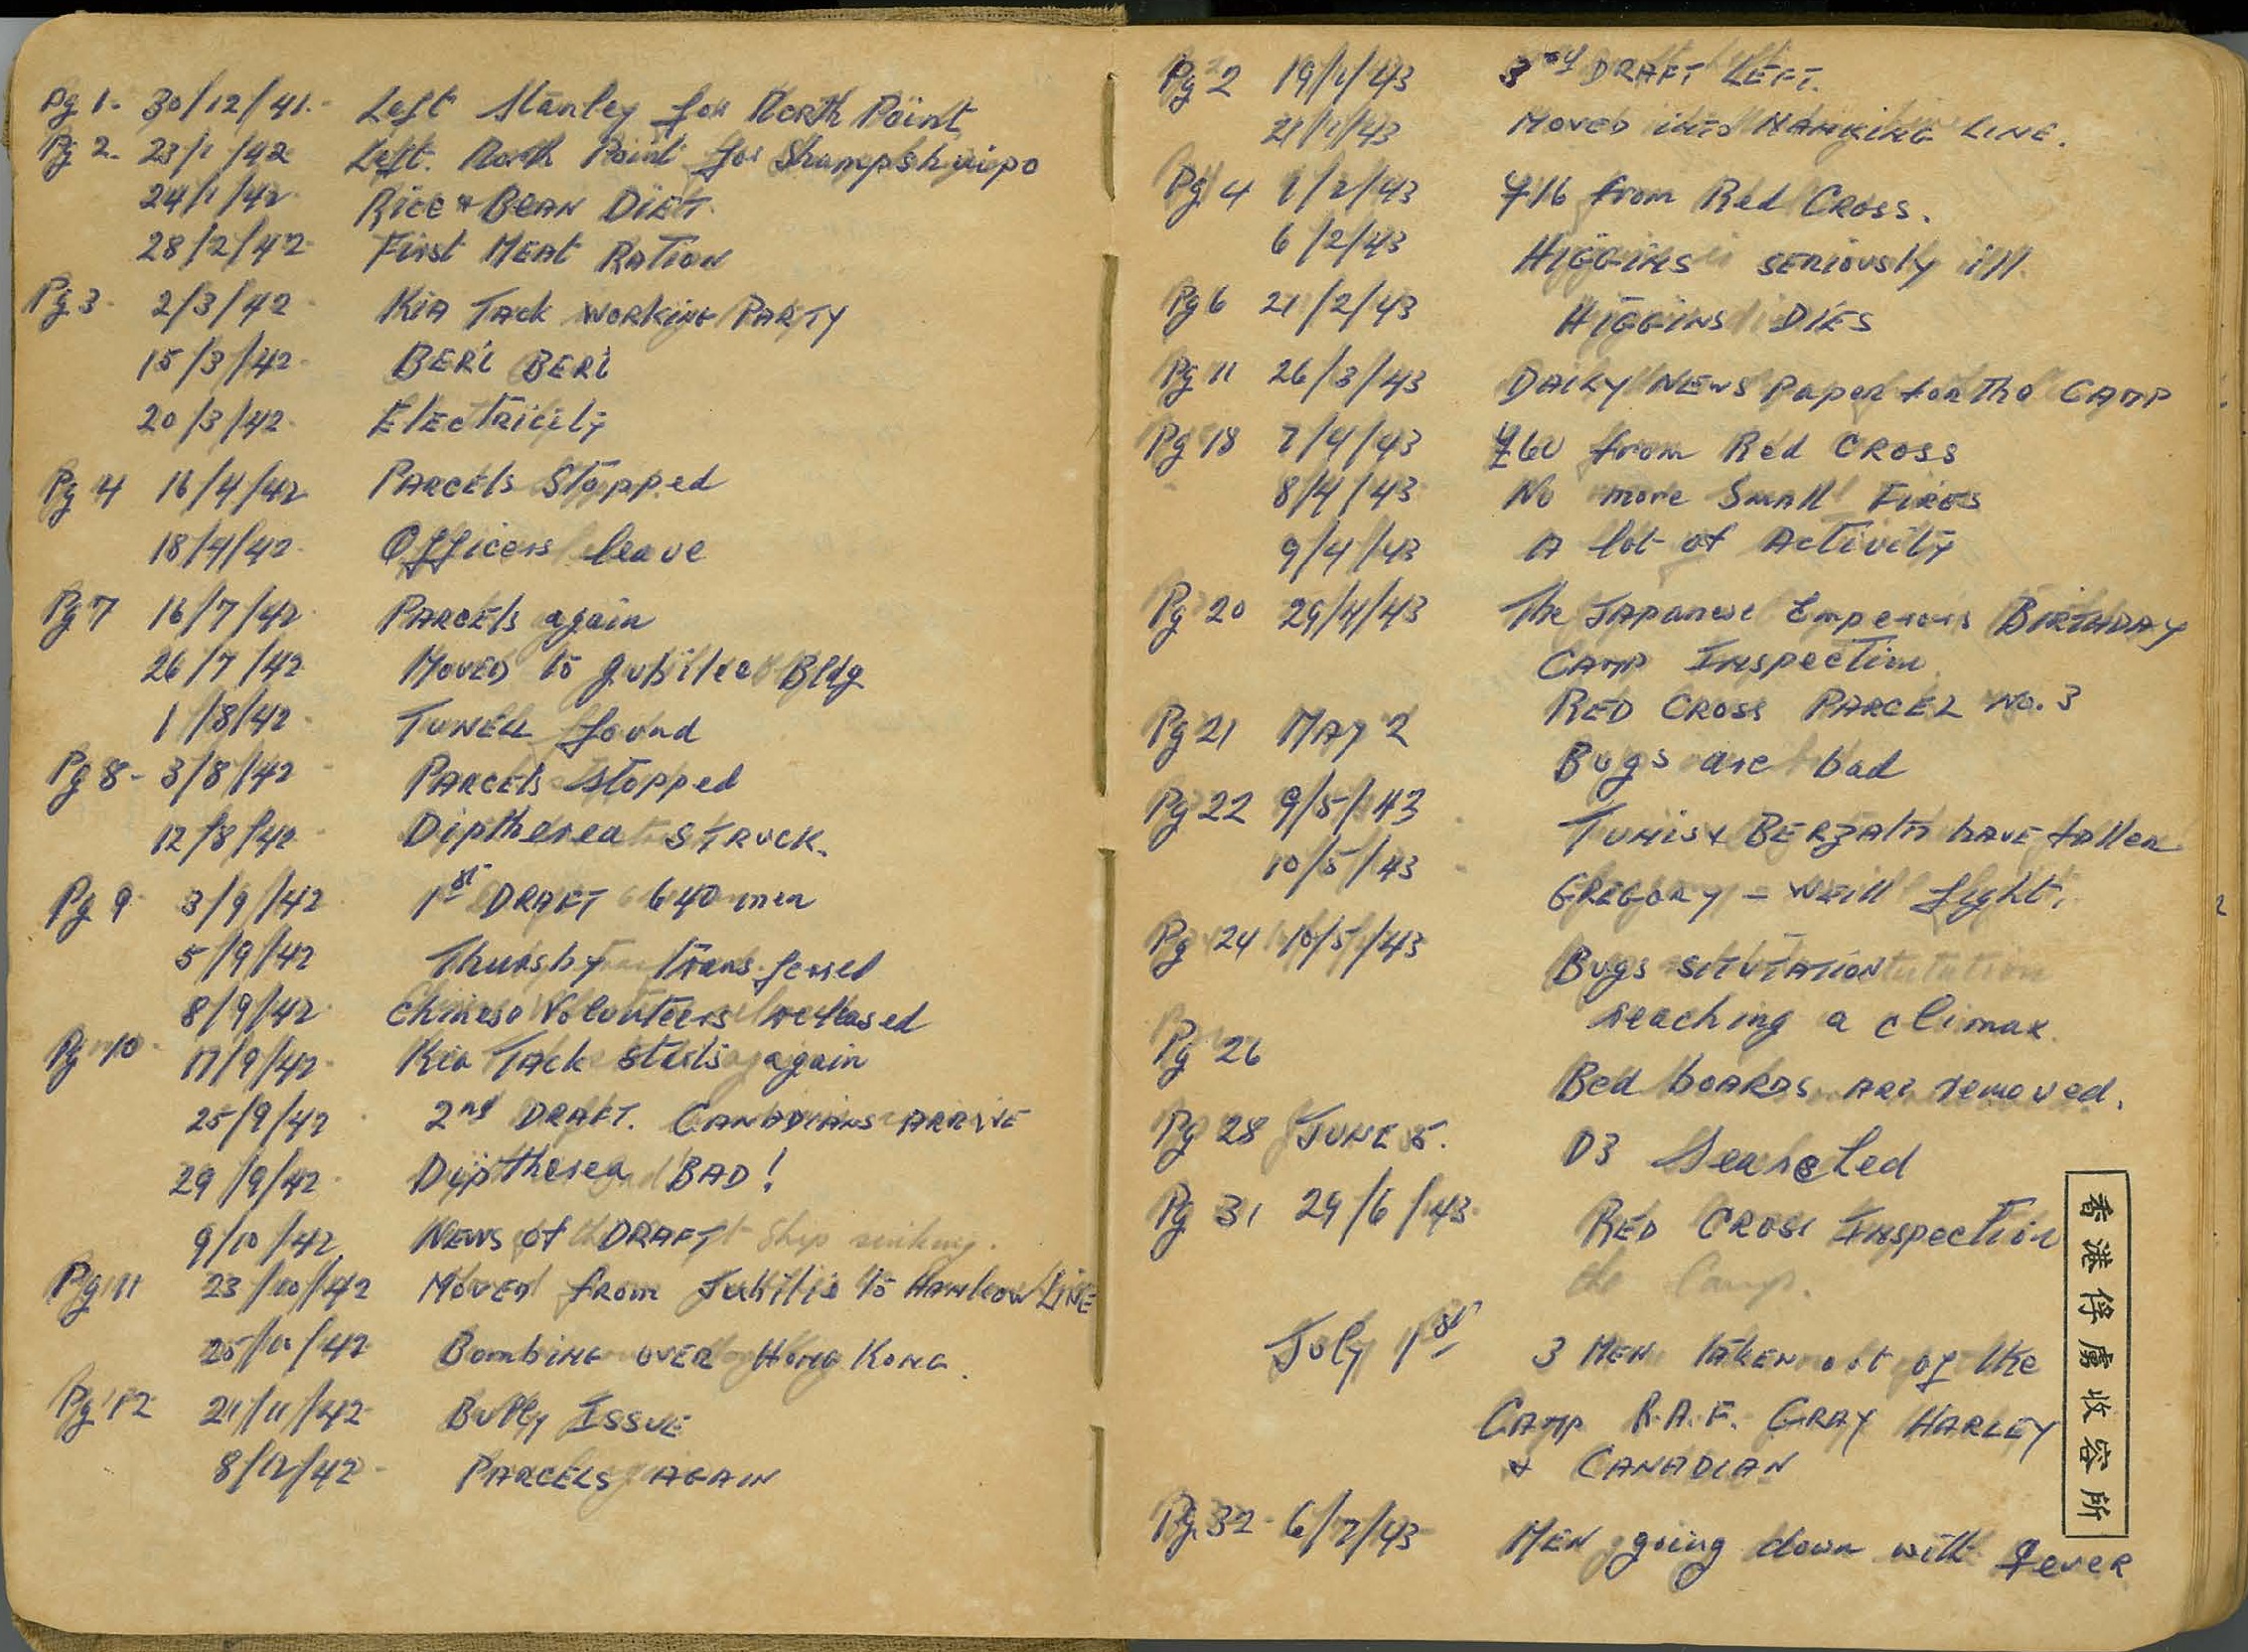 Pg 1. 30/12/41. Left Stanley for North Point
Pg 2. 23/1/42 Left. North Point for Shampshuipo
24/1/42 Rice & Bean Diet.
28/2/42 First Meat Ration
Pg 3 2/3/42 Kia Tack Working Party
15/3/42 Beri Beri
20/3/42 Electricity
Pg 4 16/4/42 Parcels Stopped
18/4/42 Officers leave
Pg 7 16/7/42 Parcels again
26/7/42 Moved to Jubilee Bldg
1/8/42 Tunell found
Pg 8 - 3/8/42 Parcels stopped
12/8/42 Diptherea STRUCK.
Pg 9 3/9/42 1st DRAFT 640 men
5/9/42 Thursby transferred
8/9/42 Chinese Volunteers released
Pg 10 17/9/42 Kia Tack starts again
25/9/42 2nd DRAFT. CANADIANS ARRIVE
29/9/42 Diptherea BAD!
9/10/42 News of DRAFT ship sinking.
Pg 11 23/10/42 Moved from Jubilie to Hankow LINE
25/10/42 Bombing over Hong Kong.
Pg 12 21/11/42 Bully Issue
8/12/42 - PARCELS AGAIN
Pg 2 19/1/43 3rd DRAFT LEFT.
21/1/43 MOVED into NANKING LINE.
Pg 4 1/2/43 ¥16 from Red Cross.
6/2/43 HIGGINS seriously ill
Pg 6 21/2/43 HIGGINS DIES
Pg 11 26/3/43 DAILY NEWS Paper for the CAMP
Pg 18 7/4/43 ¥60 from Red CROSS
8/4/43 No more Small Fires
9/4/43 A lot of Activity
Pg 20 29/4/43 The Japanese Emperors BIRTHDAY
CAMP Inspection
RED CROSS PARCEL No. 3
Pg 21 MAY 2 Bugs are bad
Pg 22 9/5/43 Tunis & have fallen
10/5/43 GREGORY - Weill fight.
Pg 24 10/5/43 Bugs situtation
reaching a climax.
Pg 26 Bed boards are removed.
Pg 28 JUNE 5. D3 Searched
Pg 31 29/6/43 RED CROSS Inspection
the Camp.
July 1st 3 MEN taken out of the
CAMP R.A.F. GRAY HARLEY
& CANADIAN
Pg. 32 - 6/7/43 MEN going down with fever
香港俘虜收容所